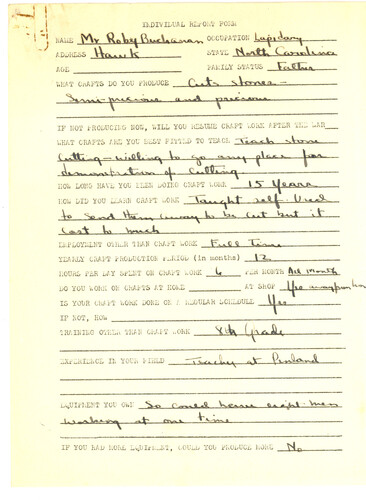 INDIVIDUAL REPORT FORM
NAME Mr Roby Buchanan OCCUPATION Lapidary
ADDRESS Hawk STATE North Carolina
AGE FAMILY STATUS Father
WHAT CRAFTS DO YOU PRODUCE Cuts stones-
Semi-precious and precious
IF NOT PRODUCING NOW, WILL YOU RESUME CRAFT WORK AFTER THE WAR
WHAT CRAFTS ARE YOU BEST FITTED TO TEACH Teach stone
Cutting - willing to go any place for
demonstration of Cutting.
HOW LONG HAVE YOU BEEN DOING CRAFT WORK 15 Years
HOW DID YOU LEARN CRAFT WORK Taught self. Used
to send them away to be Cut but it
Cost to much
EMPLOYMENT OTHER THAN CRAFT WORK Full Time
YEARLY CRAFT PRODUCTION PERIOD (in months) 12
HOURS PER DAY SPENT ON CRAFT WORK 6 PER MONTH All Month
DO YOU WORK ON CRAFTS AT HOME AT SHOP Yes away from
IS YOUR CRAFT WORK DONE ON A REGULAR SCHEDULE Yes
IF NOT, HOW
TRAINING OTHER THAN CRAFT WORK 8th Grade
EXPERIENCE IN YOUR FIELD at Penland
EQUIPMENT YOU OWN So could have eight men
working at one time
IF YOU HAD MORE EQUIPMENT, WOULD YOU PRODUCE MORE No